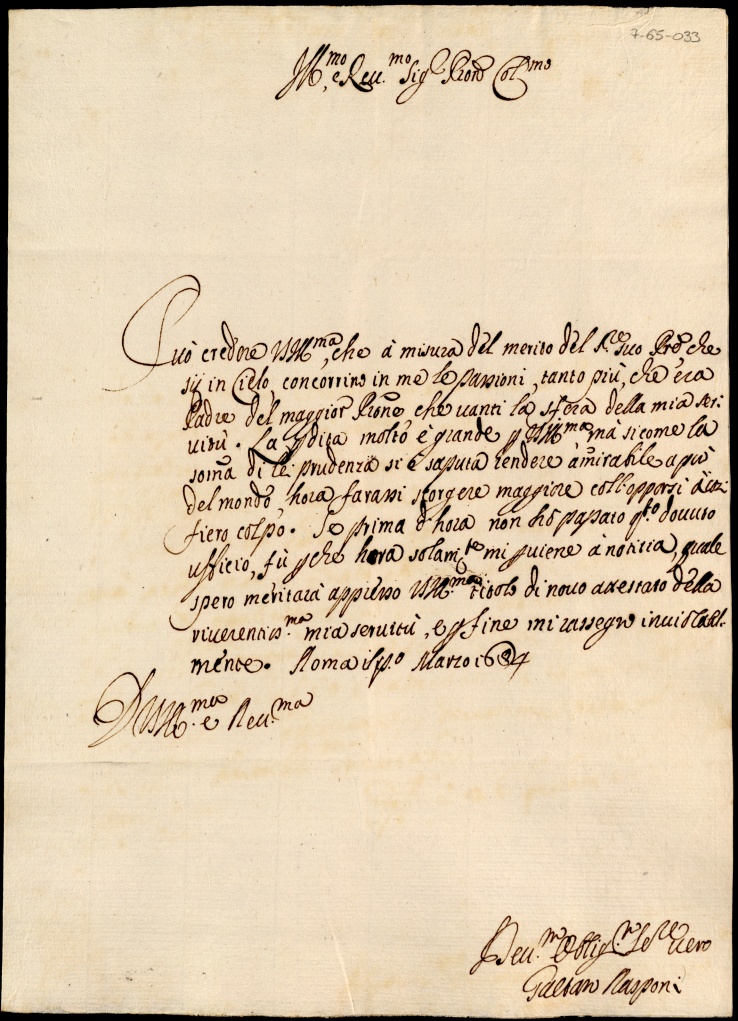 7-65-033
Ill.mo e Reu.mo Sig.r Pron Col.mo
Può credere VSIll.ma, che à misura del merito del S.re suo Pre, che
sij in Cielo, concorrino in me le passioni, tanto più, che era
Padre del maggior Prone che uanti la sfera della mia ser-
uitù. La pdita molto è grande p VSIll.ma mà si come la
soma di lei prudenza si è saputa rendere amirabile a più
del mondo, hora farassi scorgere maggiore coll'opporsi à
fiero colpo. Se prima d'hora non hò passato q.to douuto
ufficio, fù pche hora solam.te mi puiene à notitia, quale
spero meritarà appresso VSIll.ma titolo di nouo attestato della
riuerentiss.ma mia seruitù, e p fine mi rassegno inuiolabil-
mente. Roma Marzo 1684
D VSIll.ma e Reu.ma
Deu.mo Oblig.mo Se.re uero
Gaetan Rasponi